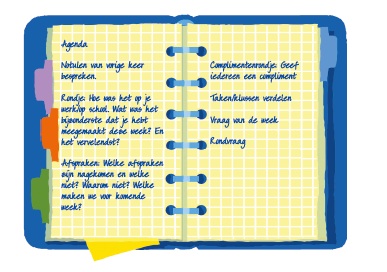 Agenda
Notulen van vorige keer
bespreken.
Rondje: Hoe was het op je
werk/op school. Wat was het
bijzonderste dat je hebt
meegemaakt deze week? En
het vervelendst?
Afspraken: Welke afspraken
zijn nagekomen en welke
niet? Waarom niet? Welke
maken we voor komende
week?
Complimentenrondje: Geef
iedereen een compliment
Taken/klussen verdelen
Vraag van de week
Rondvraag